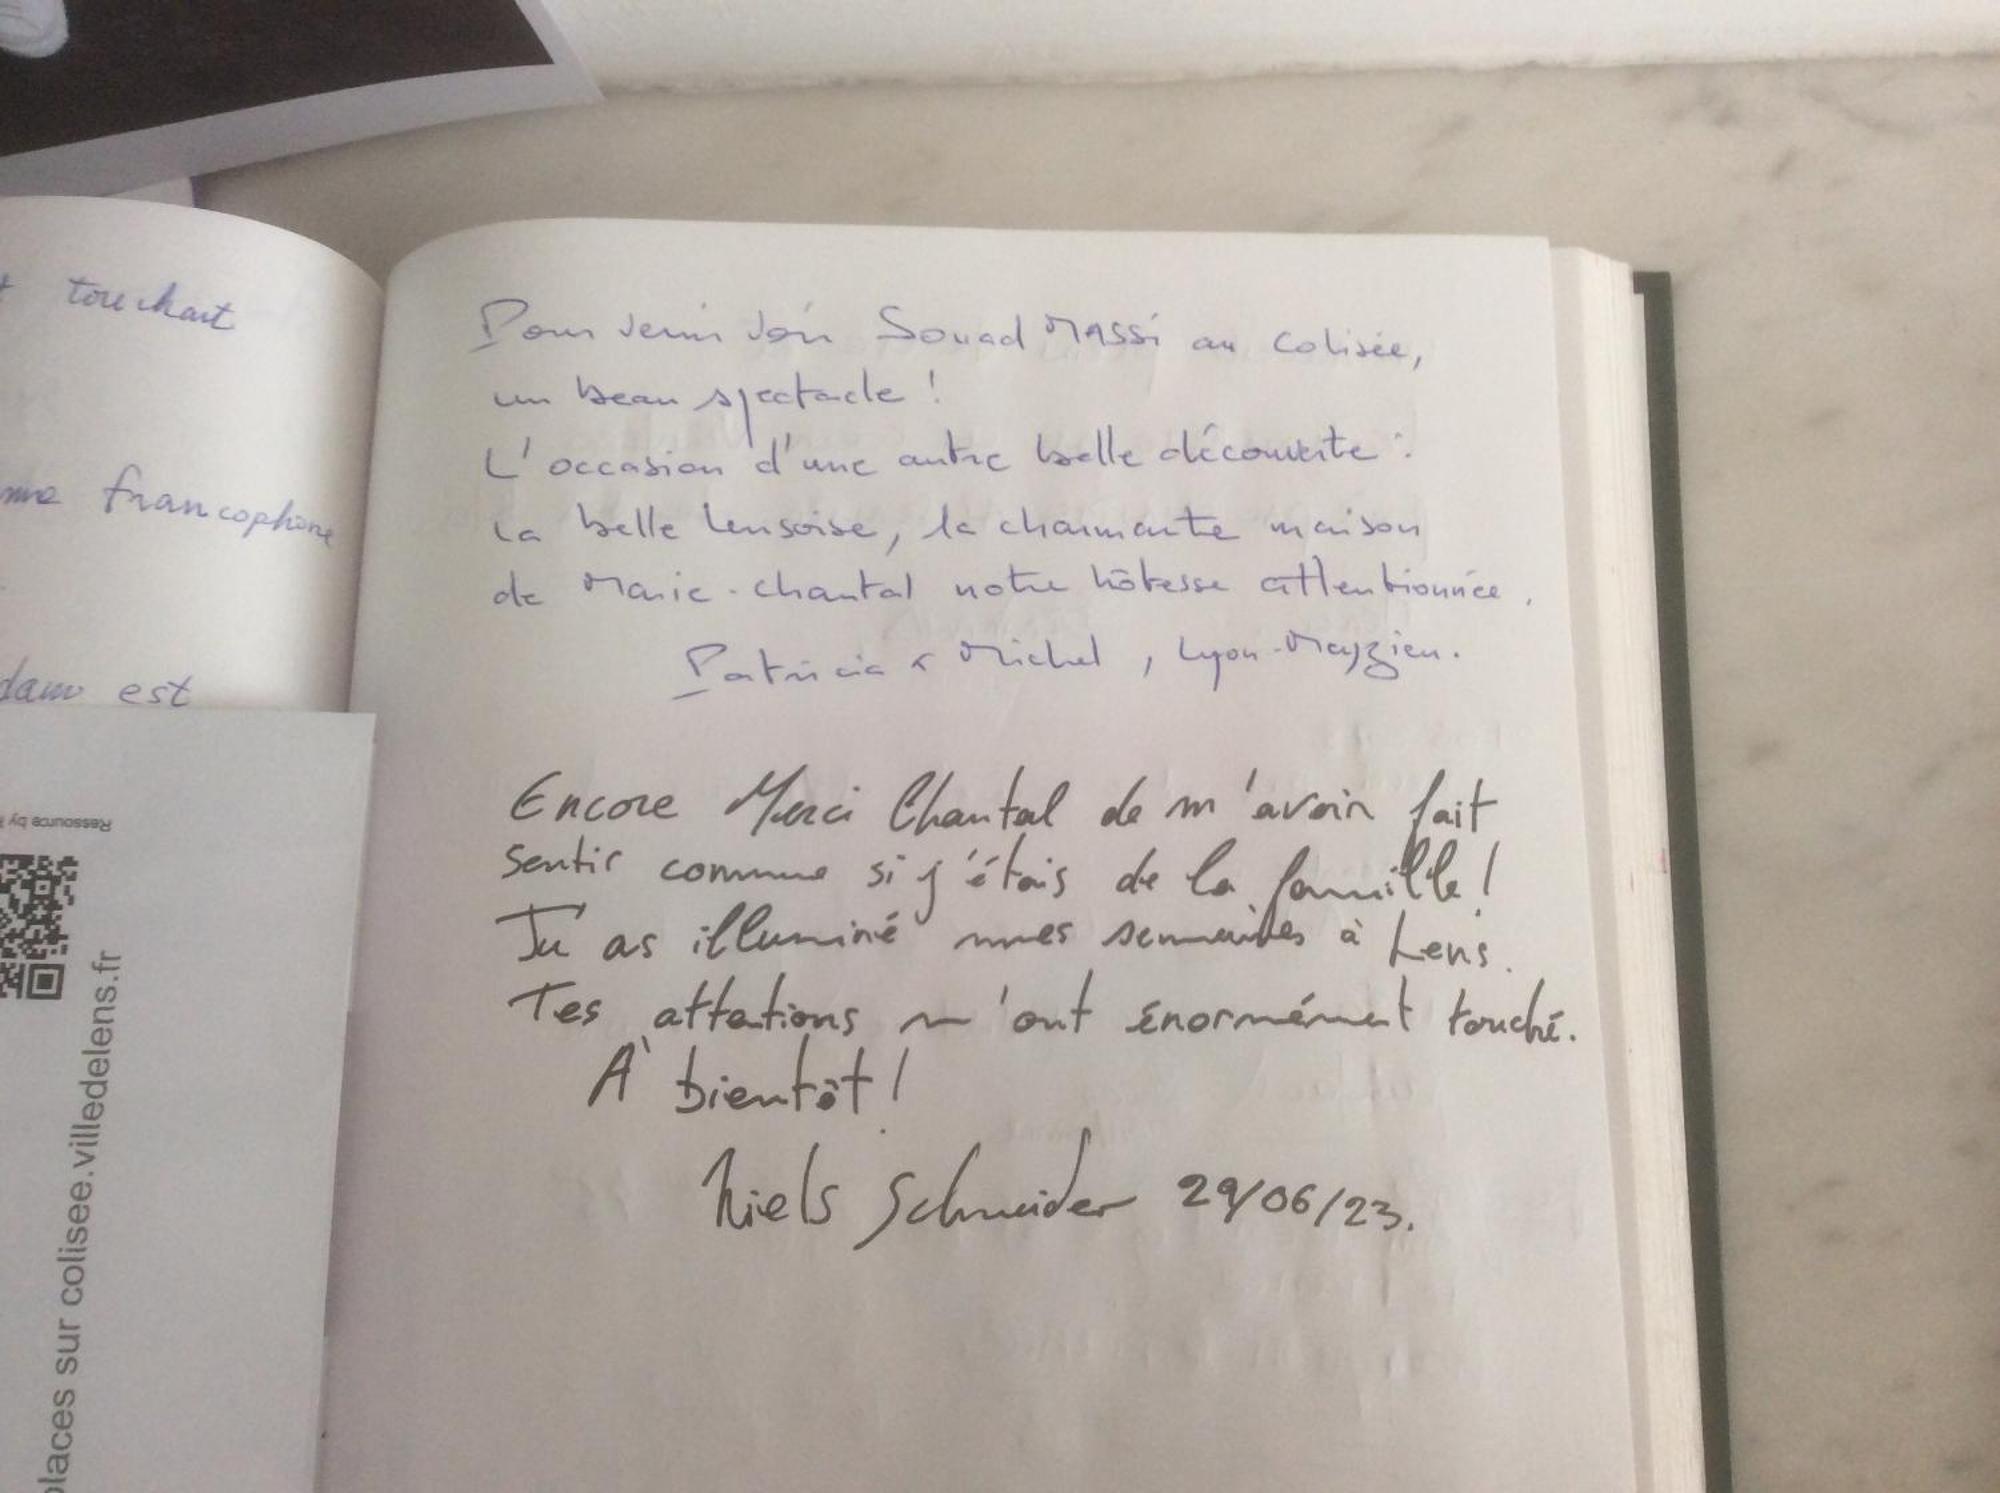 touchant
francophone
est
Ressource by
places sur colisee.villedelens.fr
Pour venir voir Souad MASSI au Colisée,
un beau spectacle !
L'occasion d'une autre belle découverte :
la belle lensoise, la charmante maison
de Marie-Chantal notre hôtesse attentionnée.
Patricia & Michel, Lyon-Meyzieu.
Encore Merci Chantal de m'avoir fait
sentir comme si j'étais de la famille !
Tu as illuminé mes semaines à Lens.
Tes attations m'ont énormément touché.
À bientôt !
Niels Schneider 29/06/23.